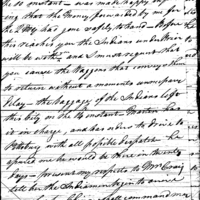 10 Constant — was made happy by
ing that the Money forwarded by me for
the 2 Mos had gone safely to hand — Before
this reaches you the Indians under Brim
will be with you and I must request that
you cause the Waggons that conveys them
to return without a moments unnecessary
Delay — the baggage of the Indians left
this City on the 14 instant — Morton has
it in charge, and has orders to Drive to
Pittsburg with all possible Dispatch he
assured me he would be there in twenty
Days — present my respects to Mrs Craig
tell her the Indian women begin to
shall command me